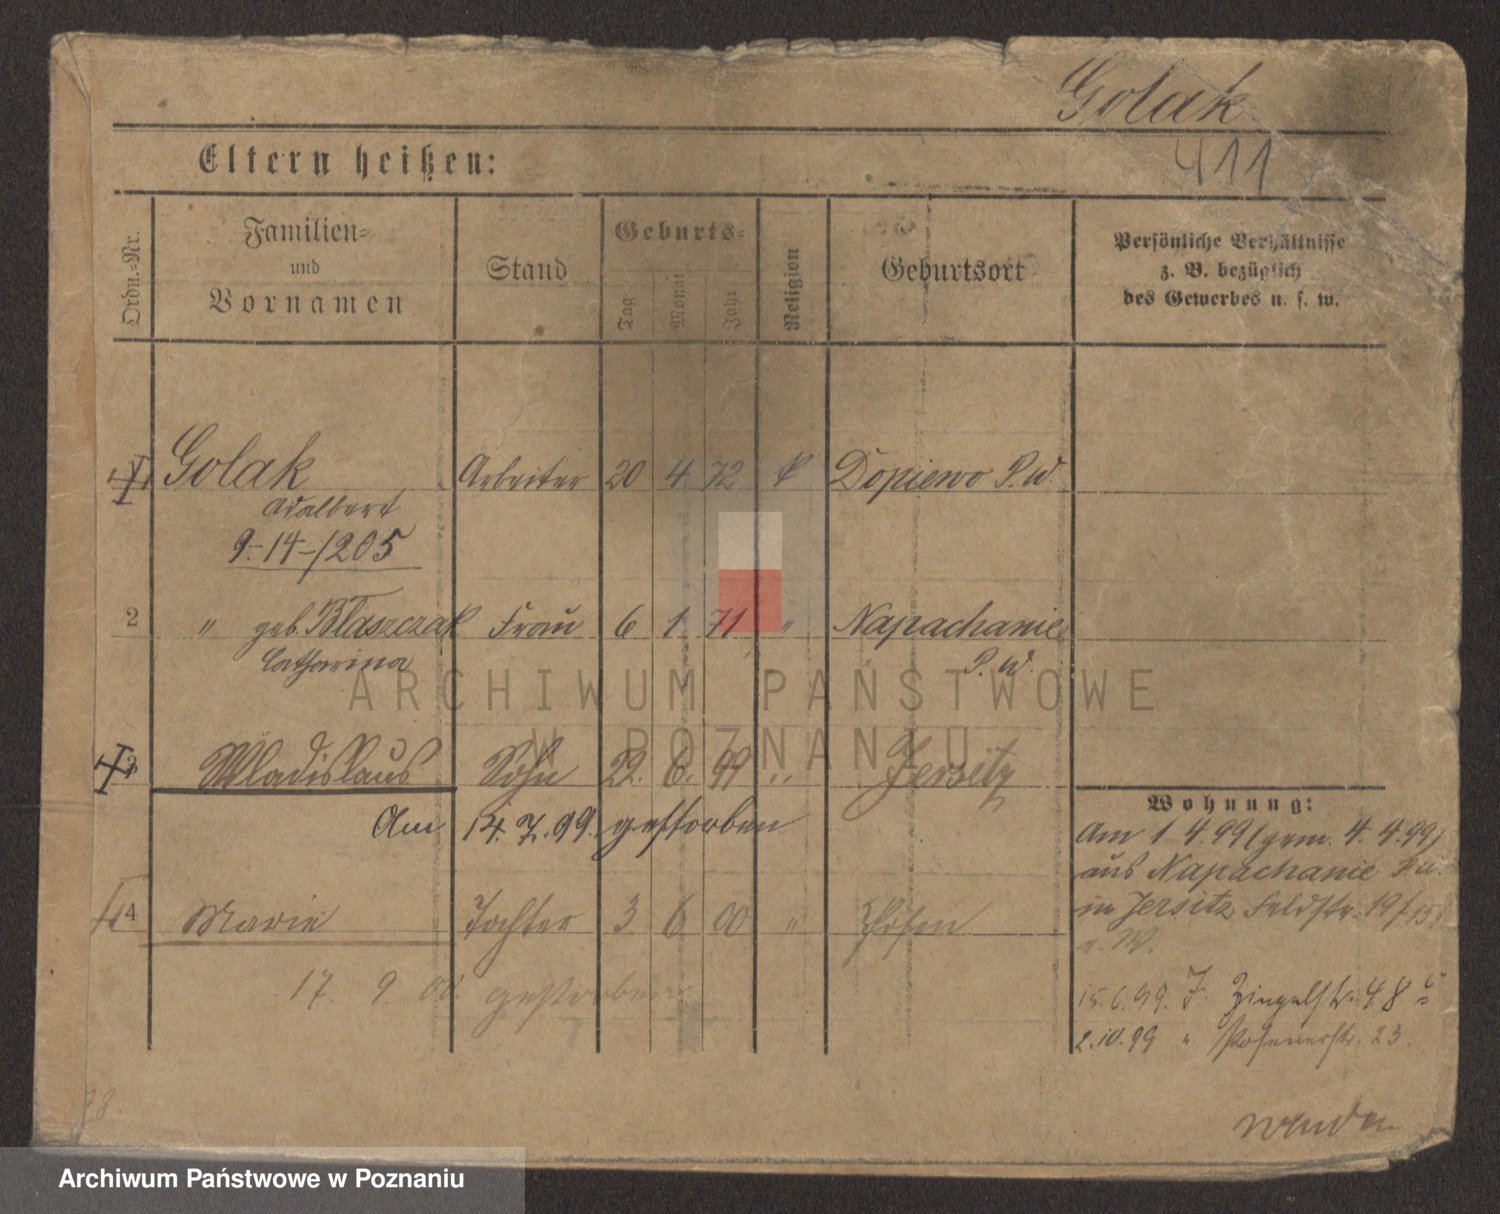 Golak
411
Eltern heißen:
Ordn.-Nr.
Familien-
und
Vornamen
Stand
Geburts-
Tag
Monat
Jahr
Religion
Geburtsort
Persönliche Verhältnisse
z. B. bezüglich
des Gewerbes u. s. w.
1 Golak Arbeiter 20 4 72 k Dopiewo P.W.
Adalbert
9-14-1205
2 " geb. Błaszczak Frau 6 1 71 " Napachanie
Catharina P.W.
3 Wladislaus Sohn 22. 6. 99 " Jersitz
Am 14.7.99. gestorben
4 Marie Tochter 3 6 00 " Posen
17. 9. 00. gestorben
Wohnung:
Am 1 4 99 (gem. 4. 4. 99)
aus Napachanie P.W.
in Jersitz Feldstr. 19
15.6.99. J. Ziegelstr. 48
2.10.99 " Posenerstr. 23.
wenden
78.
ARCHIWUM PAŃSTWOWE
W POZNANIU
Archiwum Państwowe w Poznaniu